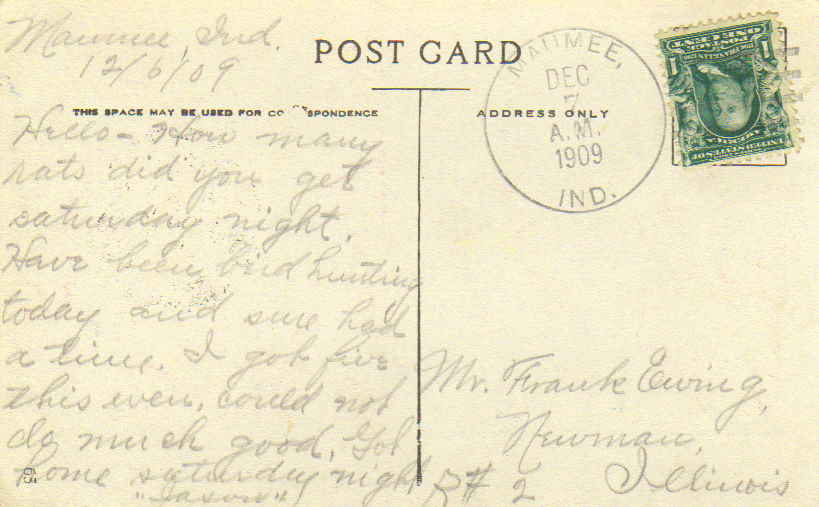 Maumee, Ind.
12/6/09
POST CARD
THIS SPACE MAY BE USED FOR CO SPONDENCE
ADDRESS ONLY
Hello - How many
rats did you get
saturday night.
Have been bird hunting
today and sure had
a time. I got five
this even, could not
do much good, Got
home saturday night
"Jason"
MAUMEE,
DEC
7
A.M.
1909
IND.
1
1
Mr. Frank Ewing,
Newman,
R# 2 Illinois